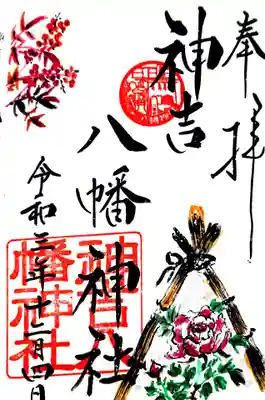 奉拝
神吉
八幡神社
令和三年十二月四日
神吉八幡神社